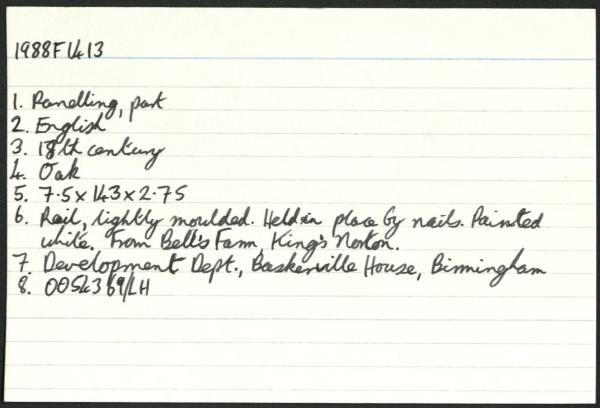 1988F1413
1. Panelling, part
2. English
3. 18th century
4. Oak
5. 7.5 x 143 x 2.75
6. Rail, lightly moulded. Held in place by nails. Painted
white. From Bell's Farm, King's Norton.
7. Development Dept., Baskerville House, Birmingham
8. 0054369/LH